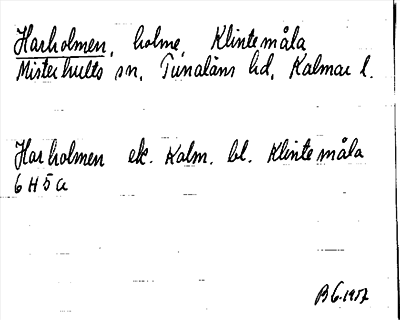 Harholmen, holme, Klintemåla
Misterhults sn, Tunaläns hd, Kalmar l.
Harholmen ek. Kalm. bl. Klintemåla
6 H 5 a
B G. 1957